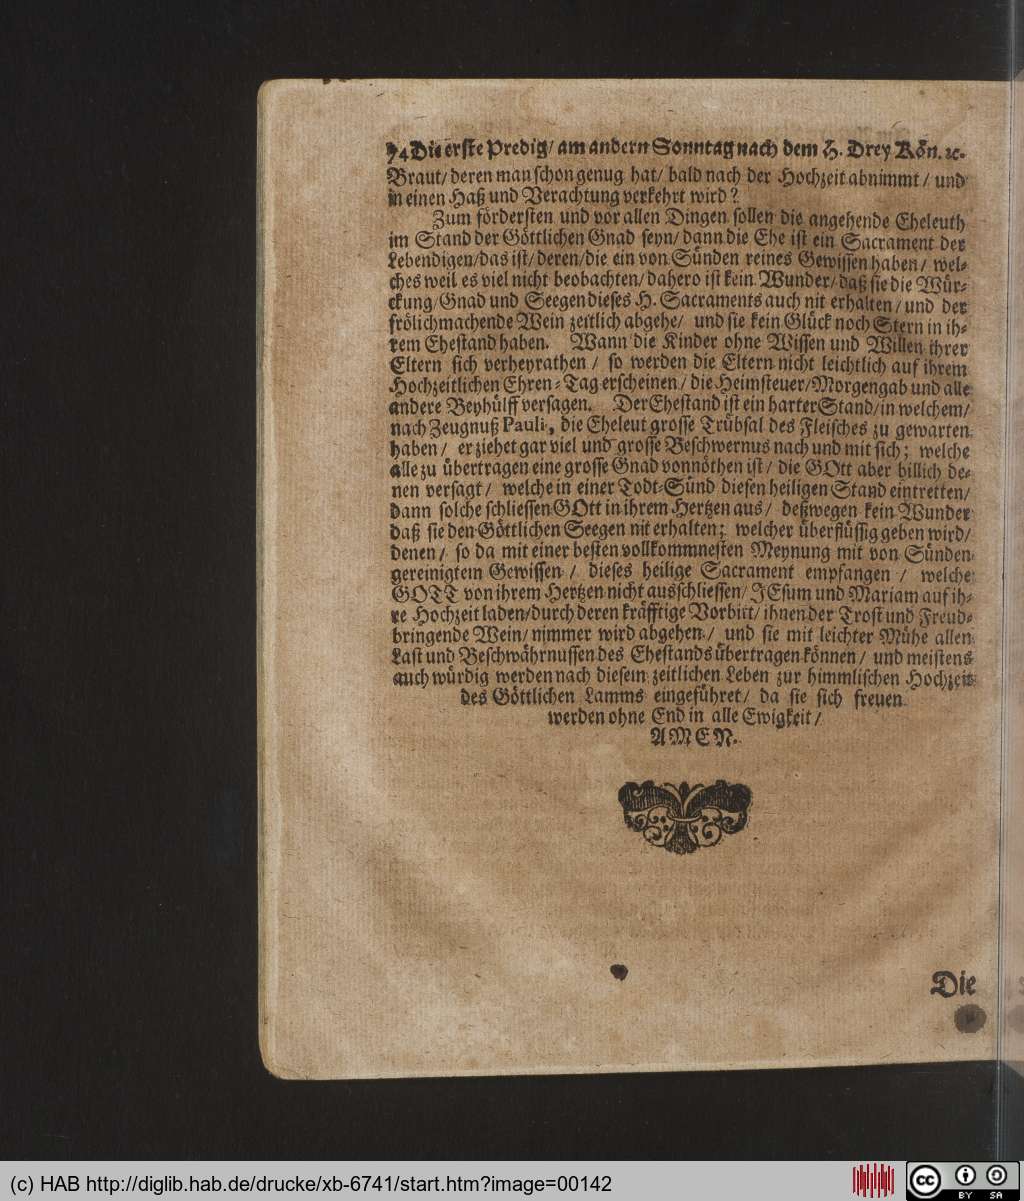 74 Die erste Predig/ am andern Sonntag nach dem H. Drey Kön. ꝛc.
Braut/ deren man schon genug hat/ bald nach der Hochzeit abnimmt/ und
in einen Haß und Verachtung verkehrt wird?
Zum fördersten und vor allen Dingen sollen die angehende Eheleuth
im Stand der Göttlichen Gnad seyn/ dann die Ehe ist ein Sacrament der
Lebendigen/ das ist/ deren/ die ein von Sünden reines Gewissen haben/ wel-
ches weil es viel nicht beobachten/ dahero ist kein Wunder/ daß sie die Wür-
ckung/ Gnad und Seegen dieses H. Sacraments auch nit erhalten/ und der
frölichmachende Wein zeitlich abgehe/ und sie kein Glück noch Stern in ih-
rem Ehestand haben. Wann die Kinder ohne Wissen und Willen ihrer
Eltern sich verheyrathen/ so werden die Eltern nicht leichtlich auf ihrem
Hochzeitlichen Ehren-Tag erscheinen/ die Heimsteuer/ Morgengab und alle
andere Beyhülff versagen. Der Ehestand ist ein harter Stand/ in welchem/
nach Zeugnuß Pauli, die Eheleut grosse Trübsal des Fleisches zu gewarten
haben/ er ziehet gar viel und grosse Beschwernus nach und mit sich; welche
alle zu übertragen eine grosse Gnad vonnöthen ist/ die GOtt aber billich de-
nen versagt/ welche in einer Todt-Sünd diesen heiligen Stand eintretten/
dann solche schliessen GOtt in ihrem Hertzen aus/ deßwegen kein Wunder
daß sie den Göttlichen Seegen nit erhalten; welcher überflüssig geben wird/
denen/ so da mit einer besten vollkommnesten Meynung mit von Sünden
gereinigtem Gewissen/ dieses heilige Sacrament empfangen/ welche
GOTT von ihrem Hertzen nicht ausschliessen/ JEsum und Mariam auf ih-
re Hochzeit laden/ durch deren kräfftige Vorbitt/ ihnen der Trost und Freud-
bringende Wein/ nimmer wird abgehen/ und sie mit leichter Mühe allen
Last und Beschwährnussen des Ehestands übertragen können/ und meistens
auch würdig werden nach diesem zeitlichen Leben zur himmlischen Hochzeit
des Göttlichen Lamms eingeführet/ da sie sich freuen
werden ohne End in alle Ewigkeit/
AMEN.
Die
(c) HAB http://diglib.hab.de/drucke/xb-6741/start.htm?image=00142
cc BY SA